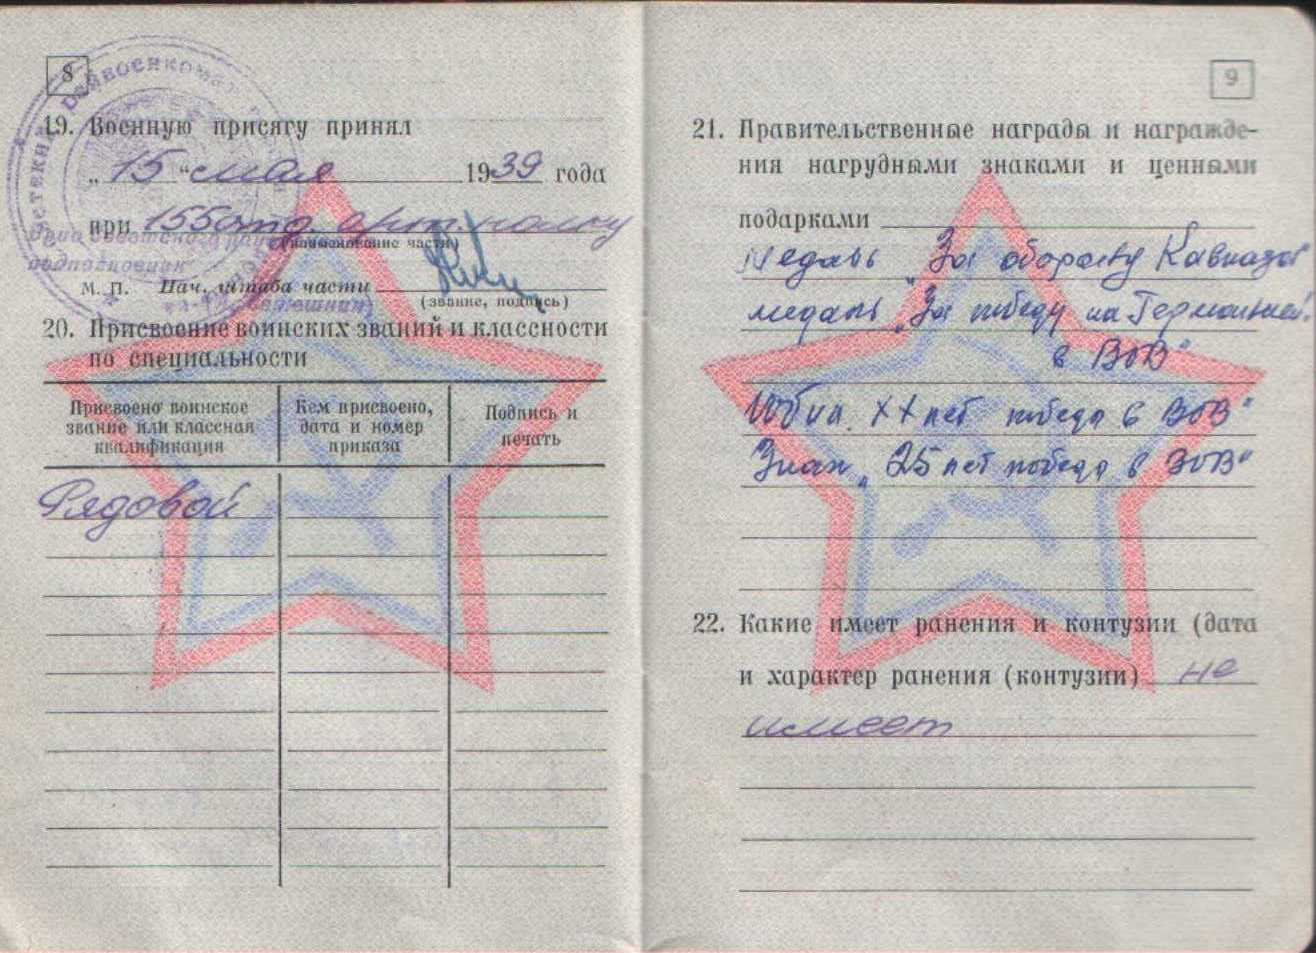 8
19. Военную присягу принял
„ 15 “ мая 1939 года
при 155 отд. арт. полку
(наименование части)
М. П. Нач. штаба части
(звание, подпись)
20. Присвоение воинских званий и классности
по специальности
Присвоено воинское звание или классная квалификация
Кем присвоено, дата и номер приказа
Подпись и печать
Рядовой
9
21. Правительственные награды и награжде-
ния нагрудными знаками и ценными
подарками
Медаль „За оборону Кавказа"
медаль „За победу над Германией
в ВОВ"
Юбил. ХХ лет победа в ВОВ"
Знак „25 лет победа в ВОВ"
22. Какие имеет ранения и контузии (дата
и характер ранения (контузии) не
имеет